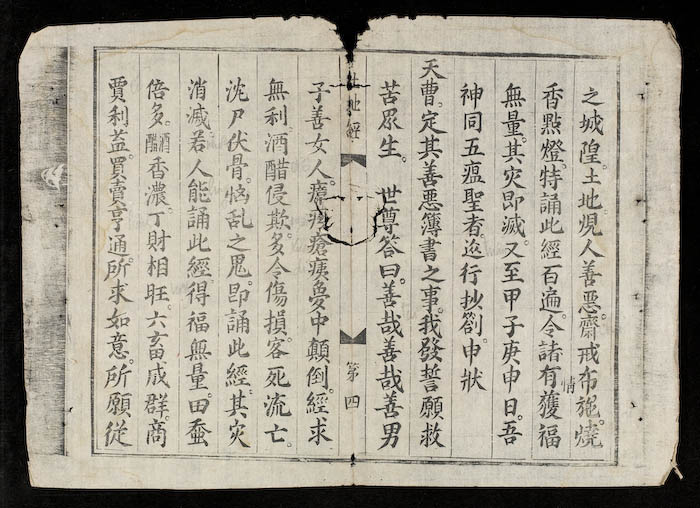 之城隍。土地。覌人善惡。齋戒布施。燒
香㸃燈。特誦此經百遍。令諸有情獲福
無量。其灾即滅。又至甲子庚申日。吾
神同五瘟聖者。巡行抄劄申狀
天曹。定其善惡簿書之事。我發誓願救
苦眾生。世尊答曰。善哉善哉善男
土地經
第四
子善女人。瘡痍。夢中顛倒。經求
無利。酒醋侵欺。多令傷損。客死流亡。
沈尸伏骨。惱乱之鬼。即誦此經。其灾
消滅。若人能誦此經。得福無量。田蚕
倍多。酒醋香濃。丁財相旺。六畜成群。商
賈利益。買賣亨通。所求如意。所願從